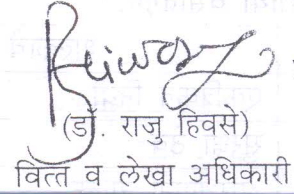 (डॉ. राजु हिवसे)
वित्त व लेखा अधिकारी